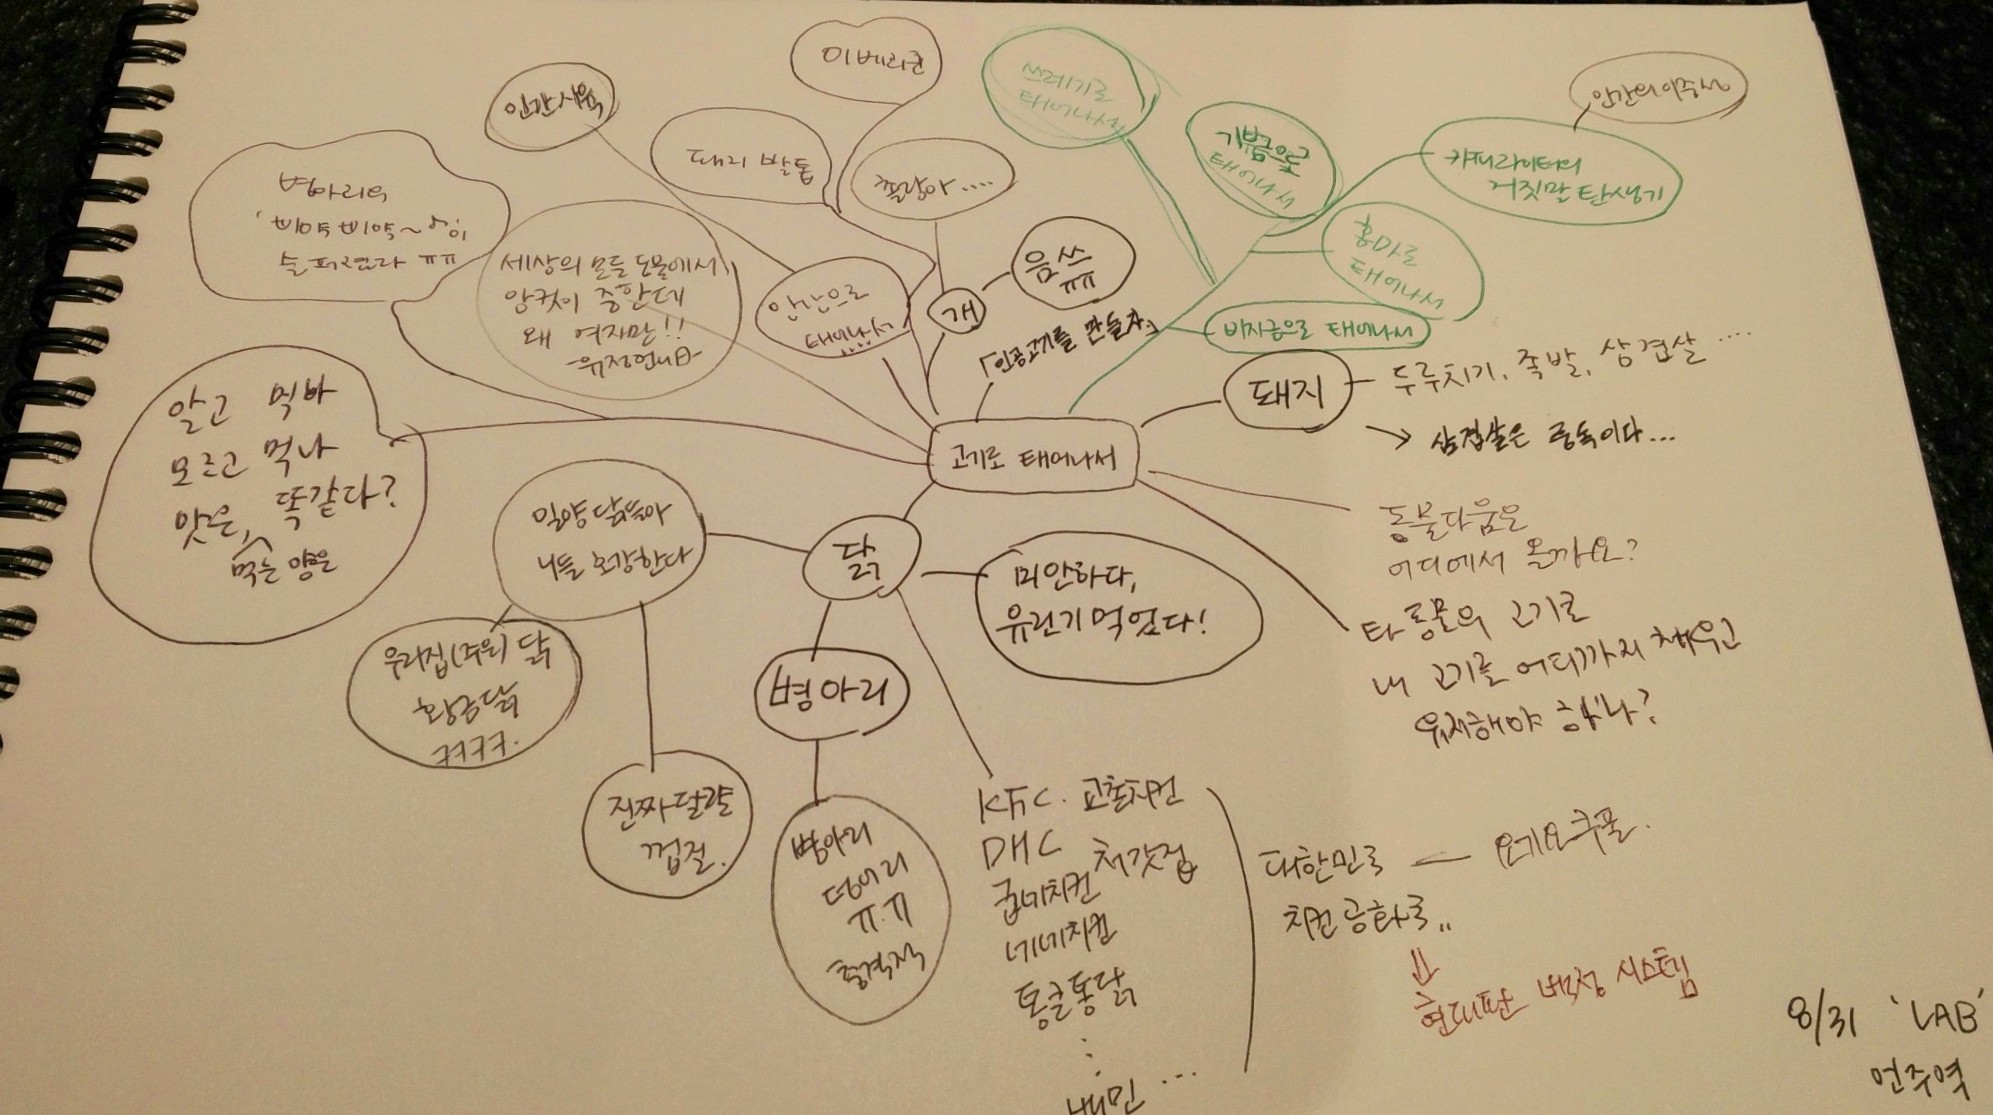 이베리코
인간사육
돼지 발톱
쫄랑아....
쓰레기로
태어나서
기쁨으로
태어나서
인간의 이주성
캐피라이터의
거짓말 탄생기
홍마로
태어나서
비자금으로 태어나서
병아리의
'삐약삐약~'이
슬퍼졌다 ㅠㅠ
세상의 모든 동물에서
암컷이 중한데
왜 여자만!!
-유정언니-
인간으로
태어나서
개
음쓰
ㅠㅠ
「인공고기를 만들자」
돼지
두루치기, 족발, 삼겹살 ...
→ 삼겹살은 중독이다...
고기로 태어나서
알고 먹나
모르고 먹나
맛은, 똑같다?
먹는 양은
밀양 닭들아
니들 건강한다
닭
미안하다,
유린기 먹었다!
동물다움은
어디에서 올까요?
타 동물의 고기로
내 고기를 어디까지 채우고
유지해야 하나?
우리집(주위) 닭
황금닭
ㅋㅋㅋㅋ.
진짜 달걀
껍질.
병아리
병아리
덩어리
ㅠ.ㅠ
충격적
KFC. 교촌치킨
DHC 처갓집
굽네치킨
네네치킨
통큰통닭
배민 ...
대한민국 — 요기요 쿠폰.
치킨 공화국..
⇓
현대판 배정 시스템
8/31 'LAB'
언주역